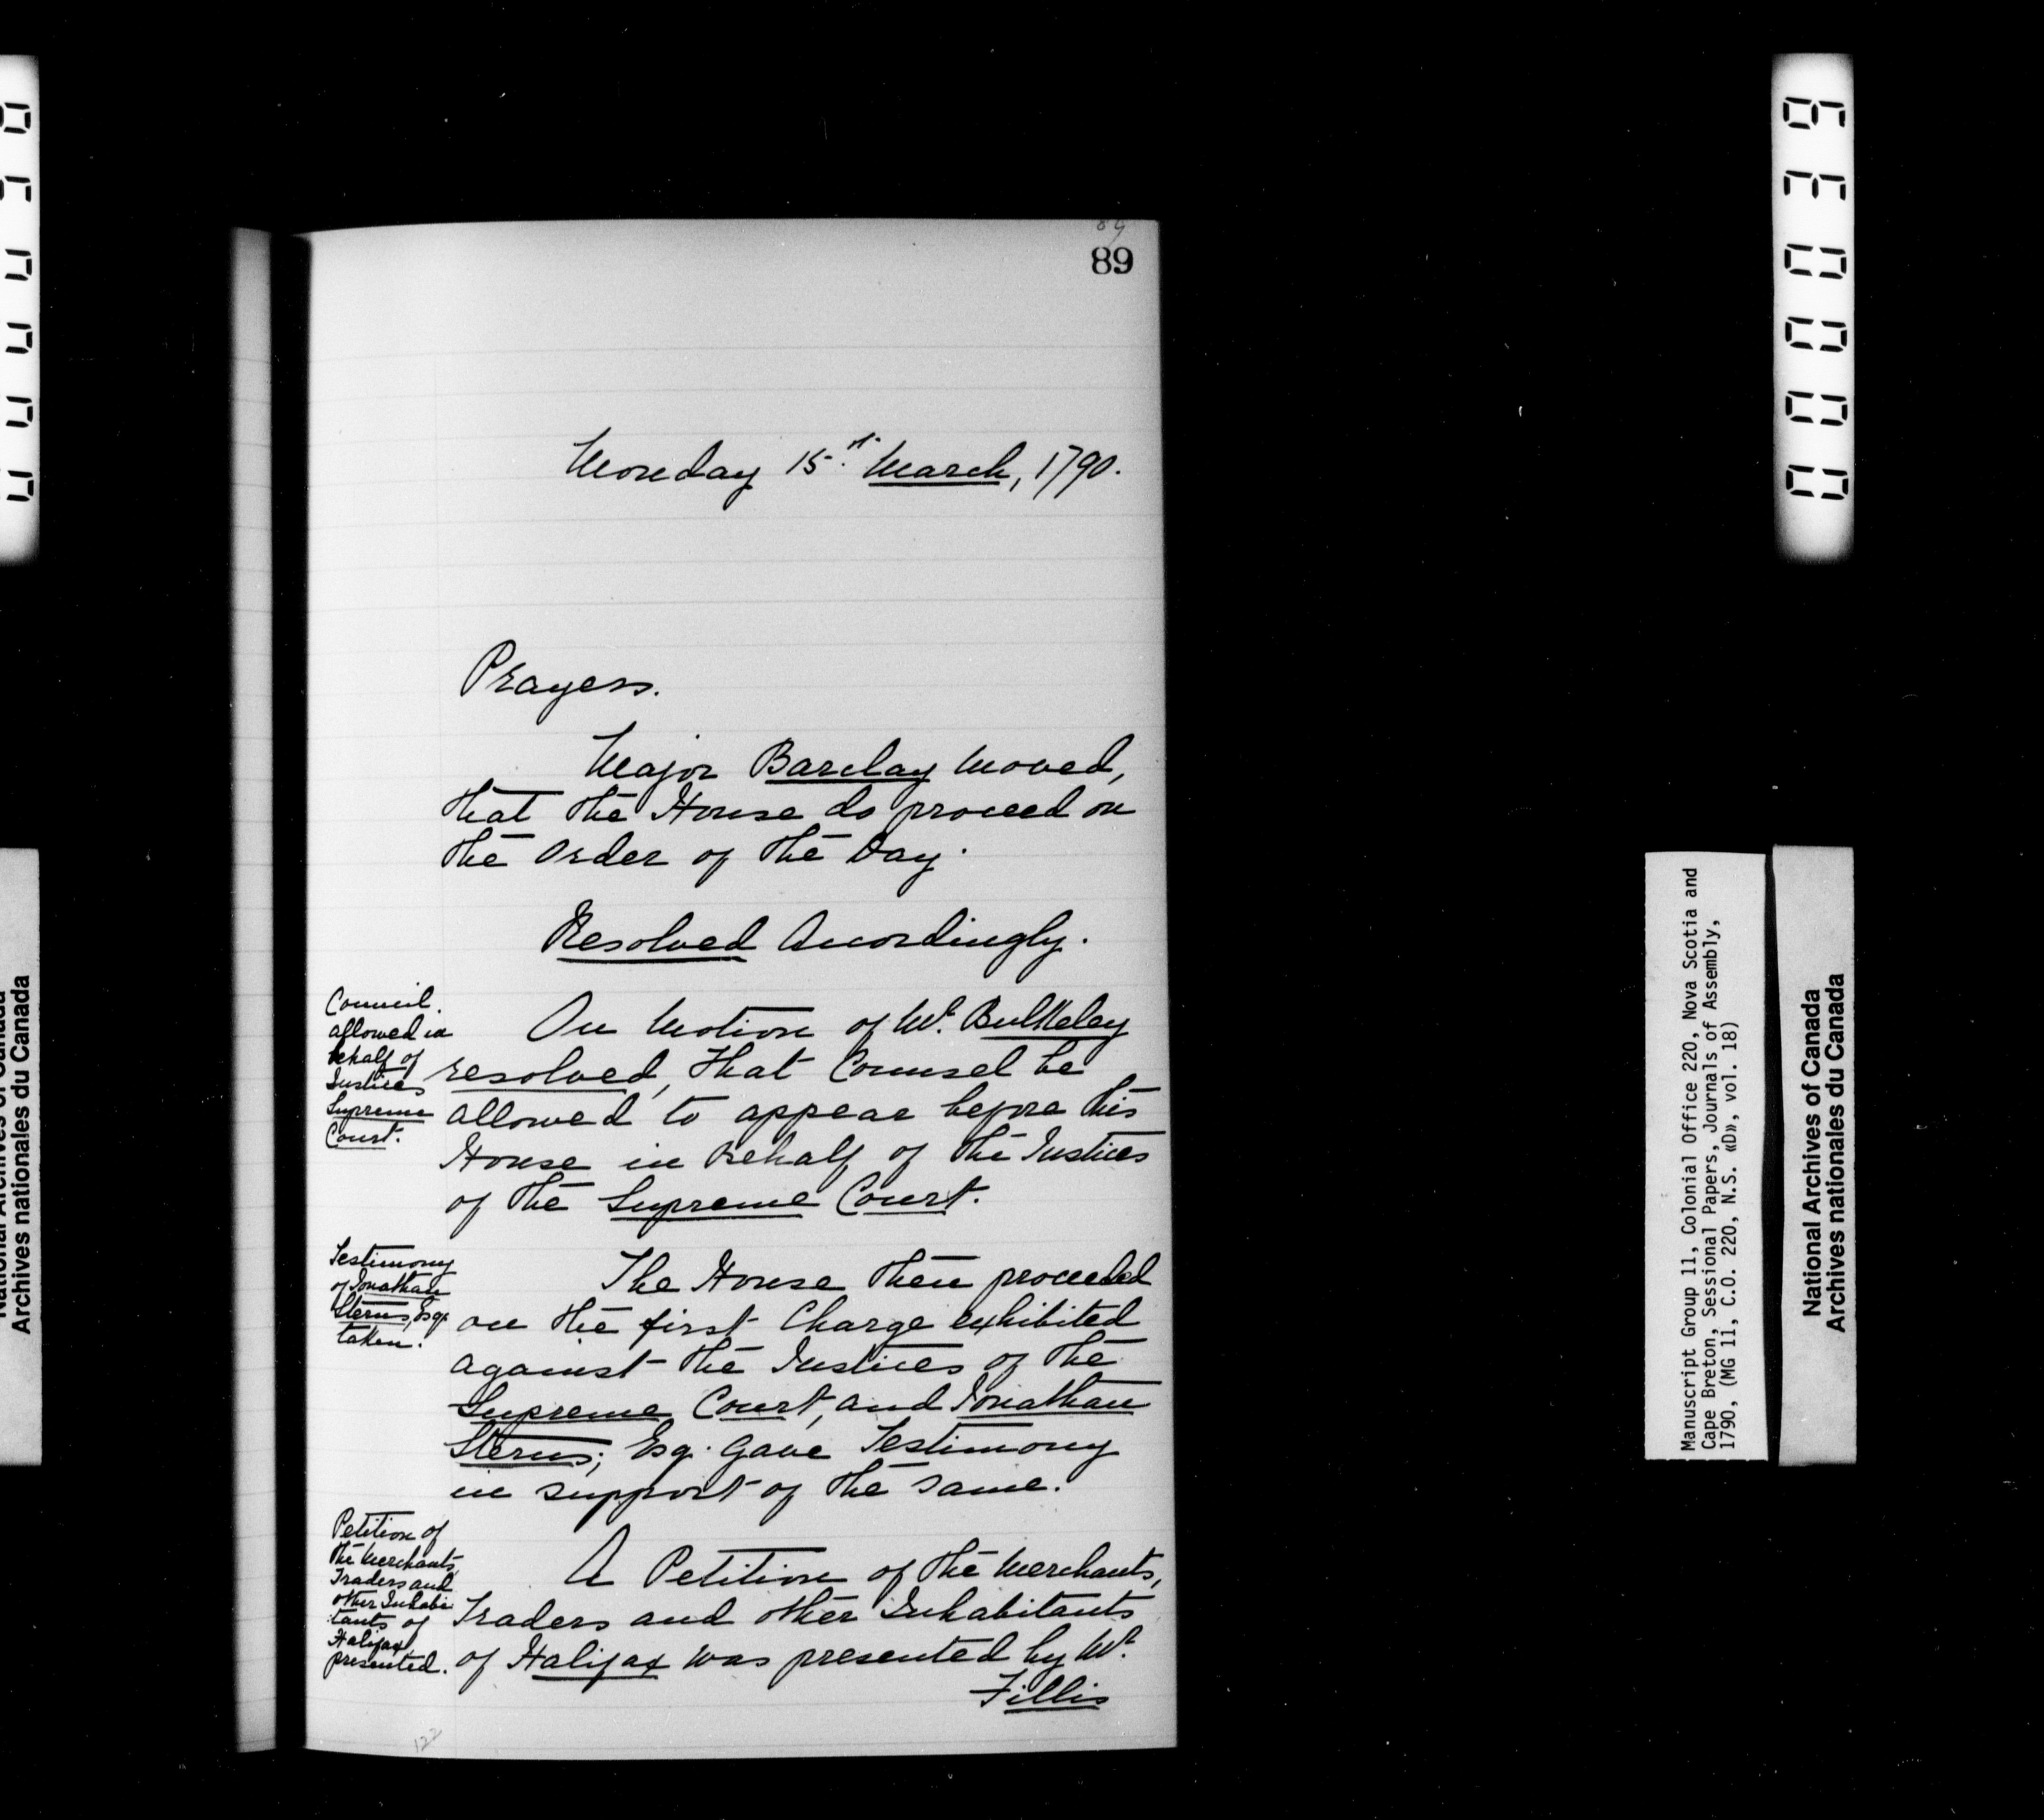 89
89
Monday 15th March, 1790.
Prayers.
Major Barclay moved,
that the House do proceed on
the Order of the Day.
Resolved Accordingly.
Council
allowed in
behalf of
Justices
Supreme
Court.
On Motion of Mr. Bulkeley
resolved, that Counsel be
allowed to appear before this
House in Behalf of the Justices
of the Supreme Court.
Testimony
of Jonathan
Sterns, Esq.
taken.
The House then proceeded
on the first Charge exhibited
against the Justices of the
Supreme Court, and Jonathan
Sterns; Esq. gave Testimony
in support of the same.
Petition of
the Merchants,
Traders and
other Inhabi
tants of
Halifax
presented.
A Petition of the Merchants,
Traders and other Inhabitants
of Halifax was presented by Mr.
Fillis
122
Manuscript Group 11, Colonial Office 220, Nova Scotia and
Cape Breton, Sessional Papers, Journals of Assembly,
1790, (MG 11, C.O. 220, N.S. «D», vol. 18)
National Archives of Canada
Archives nationales du Canada
National Archives of Canada
Archives nationales du Canada